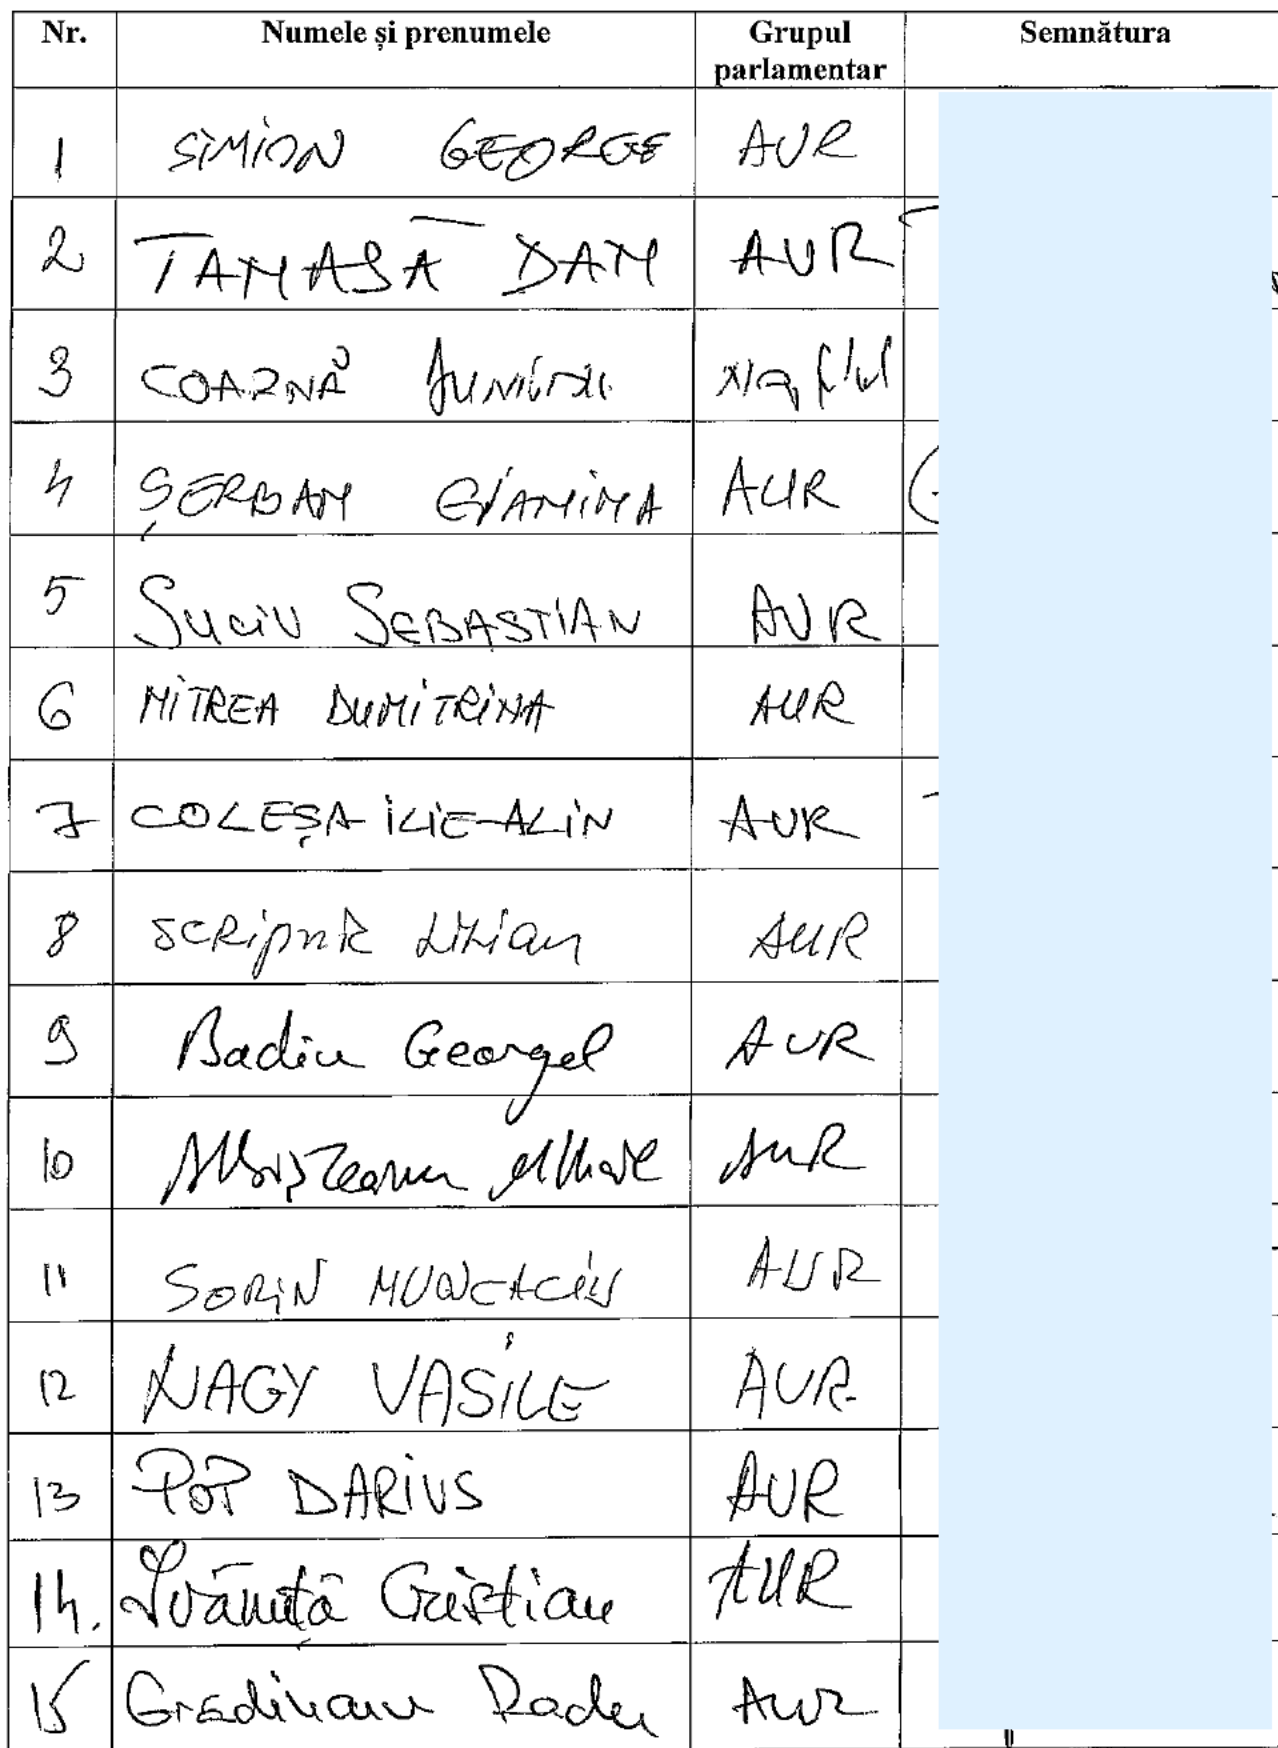 Nr. Numele și prenumele Grupul parlamentar Semnătura
1 SIMION GEORGE AUR
2 TAMASĂ DAN AUR
3 COARNĂ DUMITRU
4 ȘERBAN GIANINA AUR
5 SUCIU SEBASTIAN AUR
6 MITREA DUMITRINA AUR
7 COLEȘA ILIE-ALIN AUR
8 SCRIPNIC LILIAN AUR
9 Badiu Georgel AUR
10 Albișteanu Mihail AUR
11 SORIN MUNCACIU AUR
12 NAGY VASILE AUR
13 POP DARIUS AUR
14. Ivănuță Cristian AUR
15 Gradinaru Radu AUR